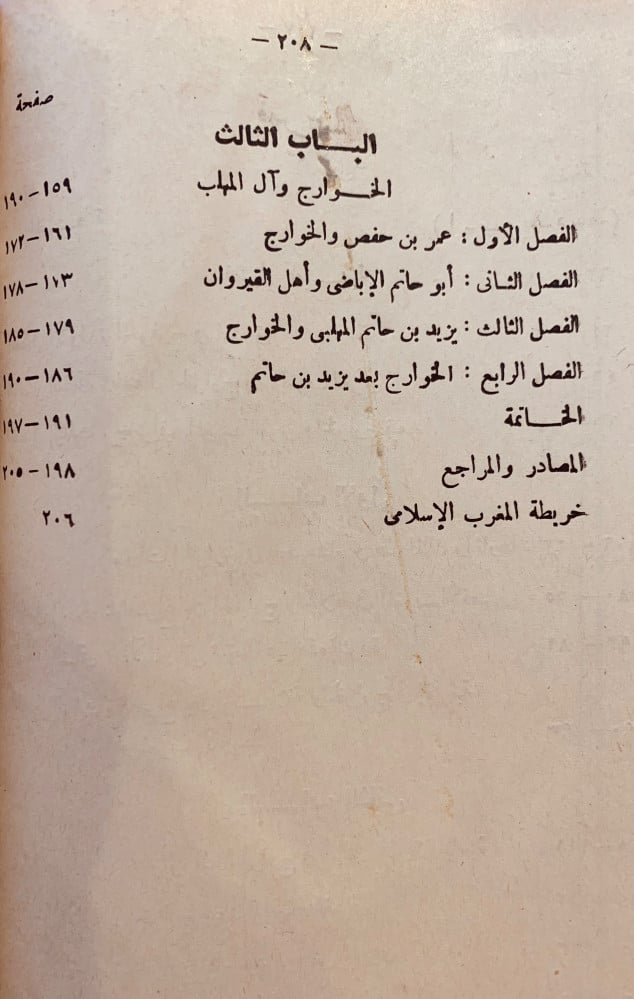 — ٢٠٨ —
صفحة
البـــاب الثالث
الخــوارج وآل المهلب ١٥٩—١٩٠
الفصل الأول : عمر بن حفص والخوارج ١٦١—١٧٢
الفصل الثانى : أبو حاتم الإباضى وأهل القيروان ١٧٣—١٧٨
الفصل الثالث : يزيد بن حاتم المهلبى والخوارج ١٧٩—١٨٥
الفصل الرابع : الخوارج بعد يزيد بن حاتم ١٨٦—١٩٠
الخــاتمة ١٩١—١٩٧
المصادر والمراجع ١٩٨—٢٠٥
خريطة المغرب الإسلامى ٢٠٦